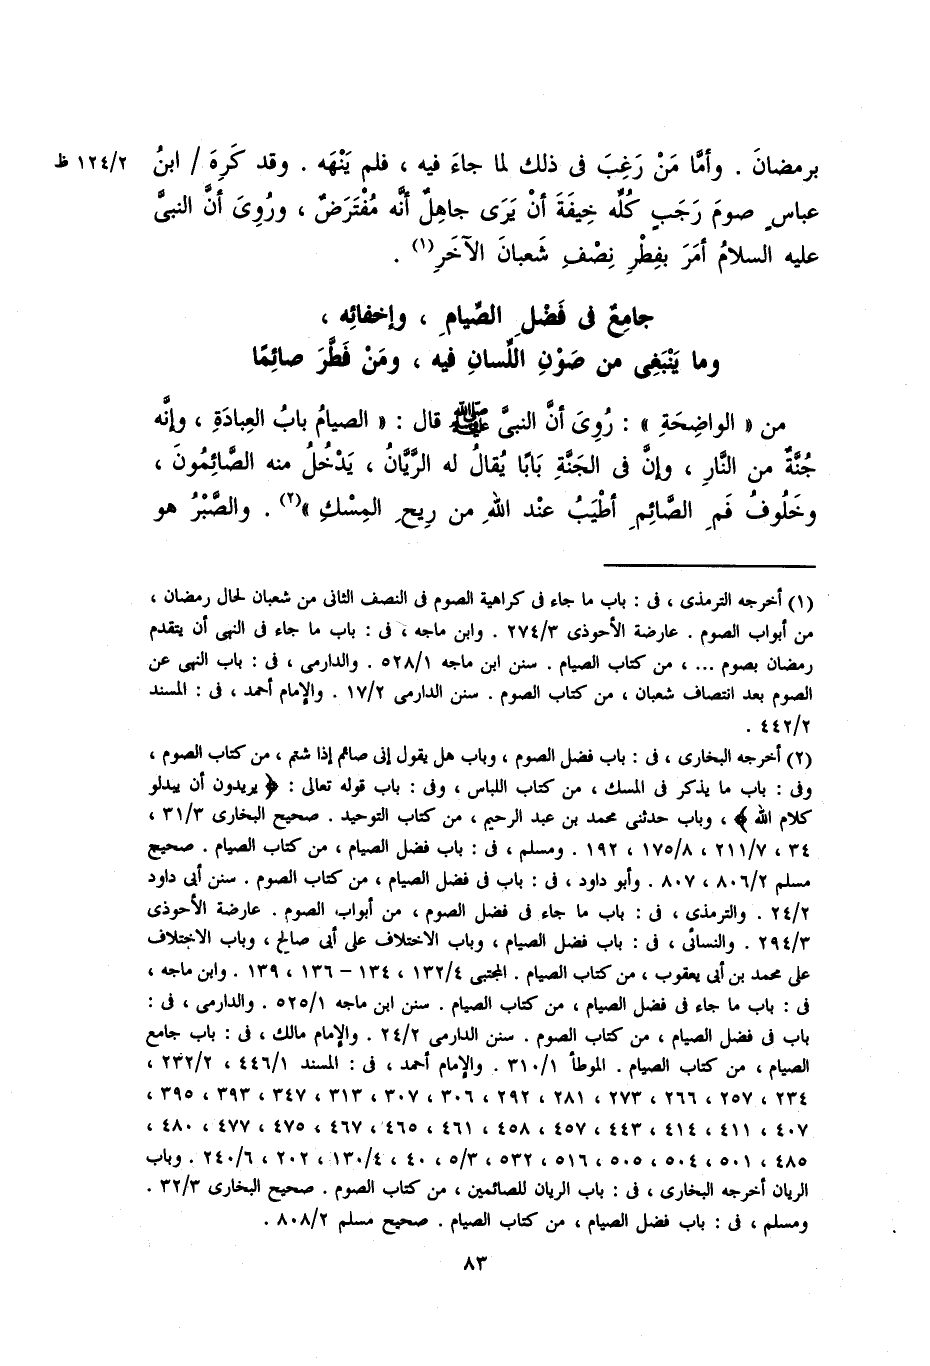 برمضانَ . وأمَّا مَنْ رَغِبَ فى ذلك لما جاءَ فيه ، فلم يَنْهَه . وقد كَرِهَ / ابنُ ١٢٤/٢ ظ
عباسٍ صومَ رَجَبٍ كُلِّه خِيفَةَ أنْ يَرَى جاهِلٌ أنَّه مُفْتَرَضٌ ، ورُوِىَ أنَّ النبىَّ
عليه السلامُ أمَرَ بفِطْرِ نِصْفِ شَعبانَ الآخَرِ(١) .
جامِعٌ فى فَضْلِ الصِّيامِ ، وإخفائِه ،
وما يَنْبَغِى من صَوْنِ اللِّسانِ فيه ، ومَنْ فَطَّرَ صائِمًا
من « الواضِحَةِ » : رُوِىَ أنَّ النبىَّ ﷺ قال : « الصيامُ بابُ العِبادَةِ ، وإنَّه
جُنَّةٌ من النَّارِ ، وإنَّ فى الجَنَّةِ بَابًا يُقالُ له الرَّيَّانُ ، يَدْخُلُ منه الصَّائِمُونَ ،
وخَلُوفُ فَمِ الصَّائِمِ أطْيَبُ عنْد اللهِ من رِيحِ المِسْكِ »(٢) . والصَّبْرُ هو
(١) أخرجه الترمذى ، فى : باب ما جاء فى كراهية الصوم فى النصف الثانى من شعبان لحال رمضان ،
من أبواب الصوم . عارضة الأحوذى ٢٧٤/٣ . وابن ماجه ، فى : باب ما جاء فى النهى أن يتقدم
رمضان بصوم ... ، من كتاب الصيام . سنن ابن ماجه ٥٢٨/١ . والدارمى ، فى : باب النهى عن
الصوم بعد انتصاف شعبان ، من كتاب الصوم . سنن الدارمى ١٧/٢ . والإمام أحمد ، فى : المسند
٤٤٢/٢ .
(٢) أخرجه البخارى ، فى : باب فضل الصوم ، وباب هل يقول إنى صائم إذا شتم ، من كتاب الصوم ،
وفى : باب ما يذكر فى المسك ، من كتاب اللباس ، وفى : باب قوله تعالى : ﴿ يريدون أن يبدلو
كلام الله ﴾ ، وباب حدثنى محمد بن عبد الرحيم ، من كتاب التوحيد . صحيح البخارى ٣١/٣ ،
٣٤ ، ٢١١/٧ ، ١٧٥/٨ ، ١٩٢ . ومسلم ، فى : باب فضل الصيام ، من كتاب الصيام . صحيح
مسلم ٨٠٦/٢ ، ٨٠٧ . وأبو داود ، فى : باب فى فضل الصيام ، من كتاب الصوم . سنن أبى داود
٢٤/٢ . والترمذى ، فى : باب ما جاء فى فضل الصوم ، من أبواب الصوم . عارضة الأحوذى
٢٩٤/٣ . والنسائى ، فى : باب فضل الصيام ، وباب الاختلاف على أبى صالح ، وباب الاختلاف
على محمد بن أبى يعقوب ، من كتاب الصيام . المجتبى ١٣٢/٤ ، ١٣٤ – ١٣٦ ، ١٣٩ . وابن ماجه ،
فى : باب ما جاء فى فضل الصيام ، من كتاب الصيام . سنن ابن ماجه ٥٢٥/١ . والدارمى ، فى :
باب فى فضل الصيام ، من كتاب الصوم . سنن الدارمى ٢٤/٢ . والإمام مالك ، فى : باب جامع
الصيام ، من كتاب الصيام . الموطأ ٣١٠/١ . والإمام أحمد ، فى : المسند ٤٤٦/١ ، ٢٣٢/٢ ،
٢٣٤ ، ٢٥٧ ، ٢٦٦ ، ٢٧٣ ، ٢٨١ ، ٢٩٢ ، ٣٠٦ ، ٣٠٧ ، ٣١٣ ، ٣٤٧ ، ٣٩٣ ، ٣٩٥ ،
٤٠٧ ، ٤١١ ، ٤١٤ ، ٤٤٣ ، ٤٥٧ ، ٤٥٨ ، ٤٦١ ، ٤٦٥ ، ٤٦٧ ، ٤٧٥ ، ٤٧٧ ، ٤٨٠ ،
٤٨٥ ، ٥٠١ ، ٥٠٤ ، ٥٠٥ ، ٥١٦ ، ٥٣٢ ، ٥/٣ ، ٤٠ ، ١٣٠/٤ ، ٢٠٢ ، ٢٤٠/٦ . وباب
الريان أخرجه البخارى ، فى : باب الريان للصائمين ، من كتاب الصوم . صحيح البخارى ٣٢/٣ .
ومسلم ، فى : باب فضل الصيام ، من كتاب الصيام . صحيح مسلم ٨٠٨/٢ .
٨٣